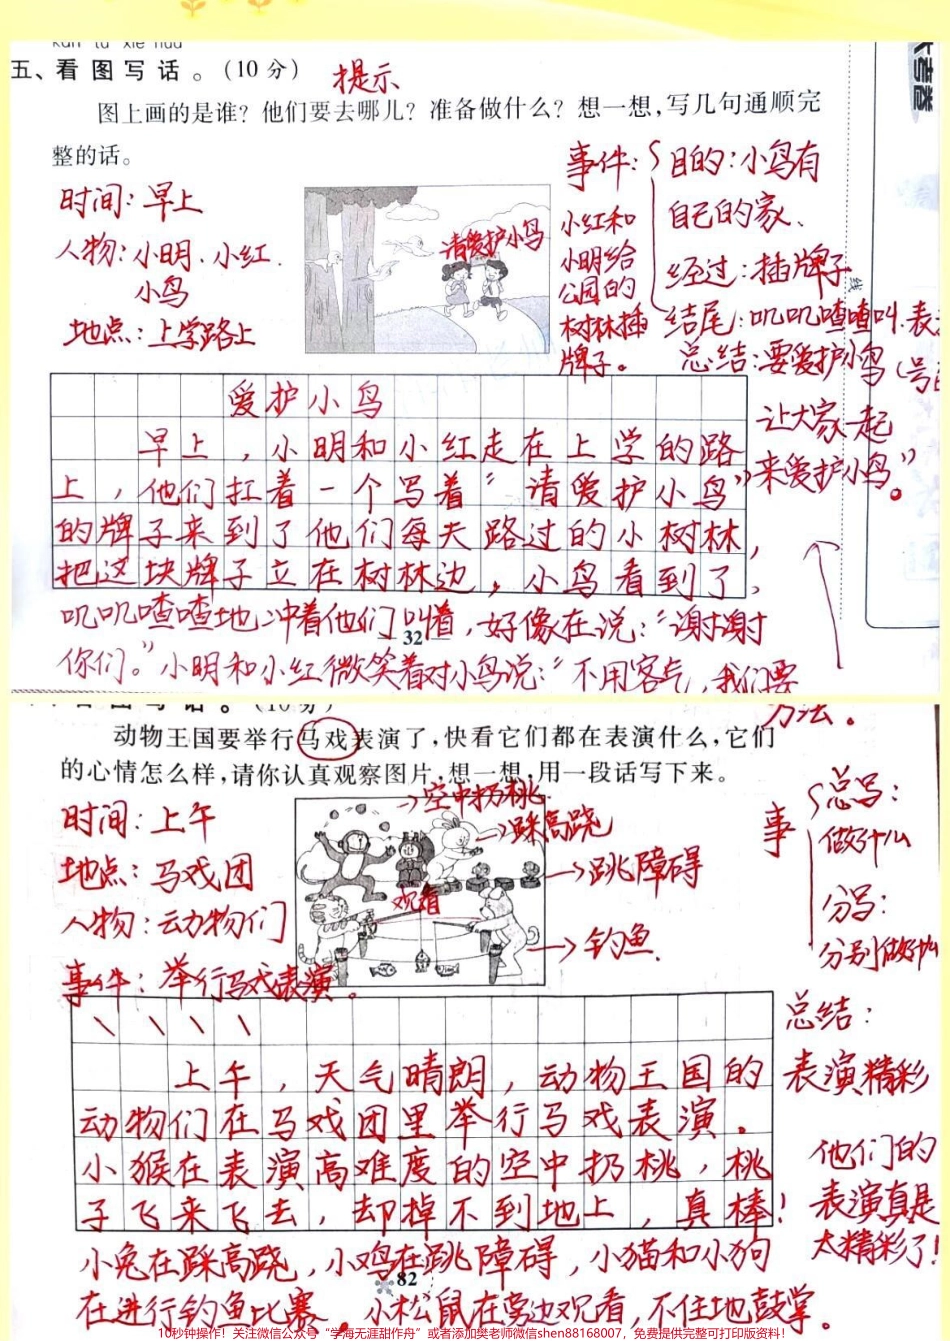 kàn tú xiě huà
五、看图写话。(10分) 提示
图上画的是谁?他们要去哪儿?准备做什么?想一想,写几句通顺完
整的话。
时间:早上
人物:小明、小红、
小鸟
地点:上学路上
请爱护小鸟
事件:
小红和
小明给
公园的
树林插
牌子。
目的:小鸟有
自己的家、
经过:插牌子
线
结尾:叽叽喳喳叫.表
总结:要爱护小鸟
让大家一起
来爱护小鸟”。
爱护小鸟
早上,小明和小红走在上学的路
上,他们扛着一个写着“请爱护小鸟”
的牌子来到了他们每天路过的小树林,
把这块牌子立在树林边,小鸟看到了,
叽叽喳喳地冲着他们叫着,好像在说:“谢谢
32
你们。”小明和小红微笑着对小鸟说:“不用客气,我们要
看图写话。(10分)
方法。
动物王国要举行马戏表演了,快看它们都在表演什么,它们
的心情怎么样,请你认真观察图片,想一想,用一段话写下来。
时间:上午
地点:马戏团
人物:动物们
事件:举行马戏表演。
→空中扔桃
→踩高跷
→跳障碍
观看
→钓鱼.
事
总写:
做什么
分写:
分别做什么
总结:
表演精彩
他们的
表演真是
太精彩了!
上午,天气晴朗,动物王国的
动物们在马戏团里举行马戏表演。
小猴在表演高难度的空中扔桃,桃
子飞来飞去,却掉不到地上,真棒!
小兔在踩高跷,小鸡在跳障碍,小猫和小狗
82
在进行钓鱼比赛。小松鼠在旁边观看,不住地鼓掌。
10秒钟操作!关注微信公众号“学海无涯甜作舟”或者添加樊老师微信shen88168007,免费提供完整可打印版资料!